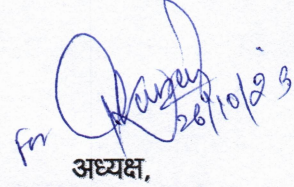 For
26/10/23
अध्यक्ष,